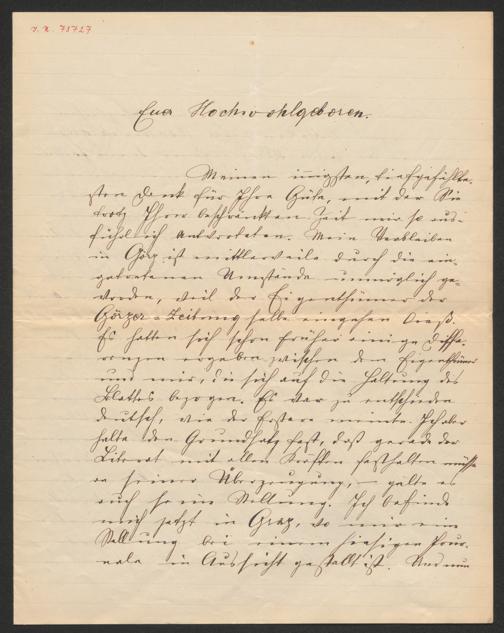 I. N. 71727
Euer Hochwohlgeboren.
Meinen innigsten, tiefgefühlte-
sten Dank für Ihre Güte, mit der Sie
trotz Ihrer beschränkten Zeit mir so aus-
führlich antworteten. Mein Verbleiben
in Görz ist mittlerweile durch die ein-
getretenen Umstände unmöglich ge-
worden, weil der Eigenthümer der
Görzer-Zeitung selbe eingehen ließ.
Es hatten sich schon früher einige Diffe-
renzen ergeben zwischen dem Eigenthümer
und mir, die sich auf die Haltung des
Blattes bezogen. Es war zu entschieden
deutsch, wie der Erstere meinte. Ich aber
halte den Grundsatz fest, daß gerade der
Literat mit allen Kräften festhalten müsse
an seiner Überzeugung, – gelte es
auch seine Stellung. Ich befinde
mich jetzt in Graz, wo mir eine
Stellung bei einem hiesigen Jour-
nale in Aussicht gestellt ist. Und nun